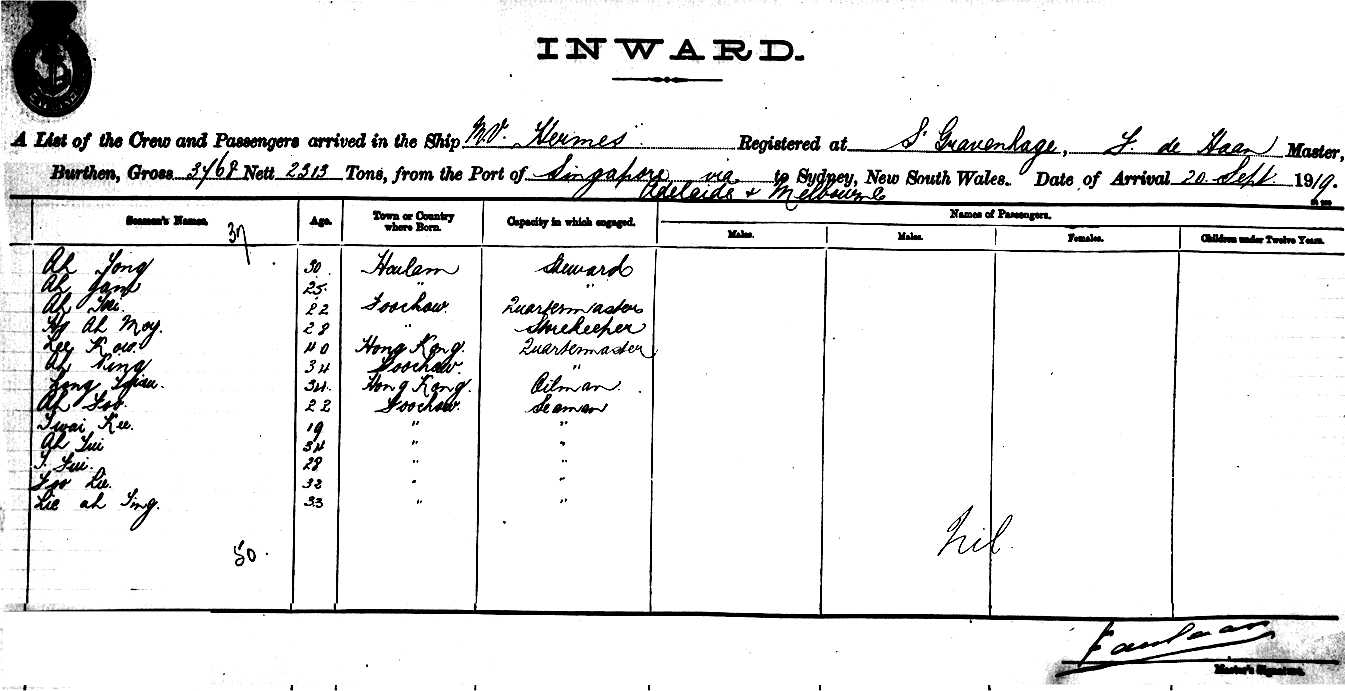 INWARD.
A List of the Crew and Passengers arrived in the Ship M.V. "Hermes" Registered at S' Gravenhage, de Haan Master,
Burthen, Gross 3768 Nett 2313 Tons, from the Port of Singapore via to Sydney, New South Wales. Date of Arrival 20 Sept. 1919.
Adelaide & Melbourne
Seamen's Names. Age. Town or Country where Born. Capacity in which engaged. Names of Passengers.
Males. Males. Females. Children under Twelve Years.
37
Ah Tong 30 Hailam Steward
Ah 25 " "
Ah 22 Foochow Quartermaster
Ah Moy. 28 " Storekeeper
Lee Kow. 40 Hong Kong. Quartermaster
Ah 34 Foochow. "
34 Hong Kong. Oilman
Ah Foo. 22 Foochow. Seaman
Kee. 19 " "
Ah 34 " "
28 " "
Foo Lee. 32 " "
Lie ah Ting. 33 " "
Nil.
50.
Master's Signature.